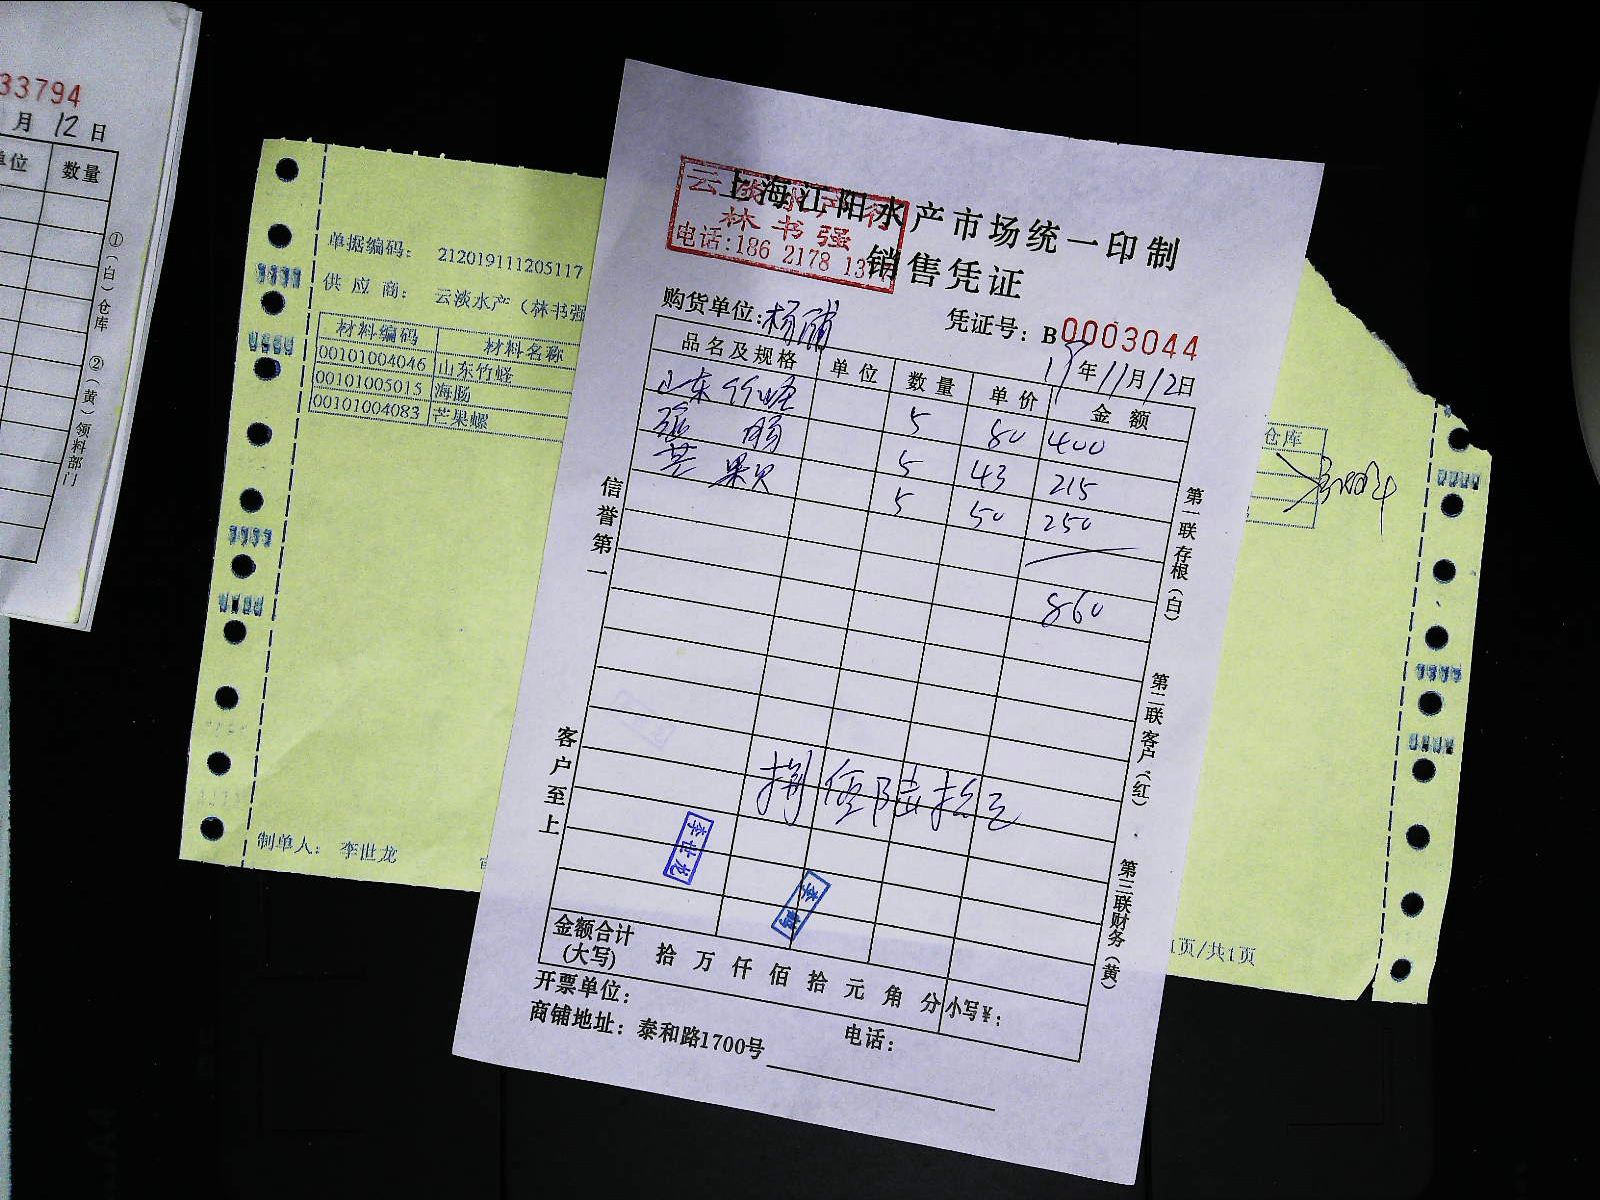 33794
月 12 日
单位 数量
①(白)仓库 ②(黄)领料部门
单据编码: 212019111205117
供应商: 云淡水产(林书强
材料编码 材料名称
00101004046 山东竹蛏
00101005015 海肠
00101004083 芒果螺
仓库
制单人: 李世龙
1页/共1页
上海江阳水产市场统一印制
销售凭证
云淡水产行
林书强
电话:186 2178 13
购货单位:杨
凭证号: B0003044
19年11月12日
品名及规格 单位 数量 单价 金额
山东竹蛏 5 80 400
5 43 215
芒果贝 5 50 250
860
捌佰陆拾元
李世龙
李
信誉第一
客户至上
第一联存根(白)
第二联客户(红)
第三联财务(黄)
金额合计(大写) 拾 万 仟 佰 拾 元 角 分 小写¥:
开票单位: 电话:
商铺地址: 泰和路1700号